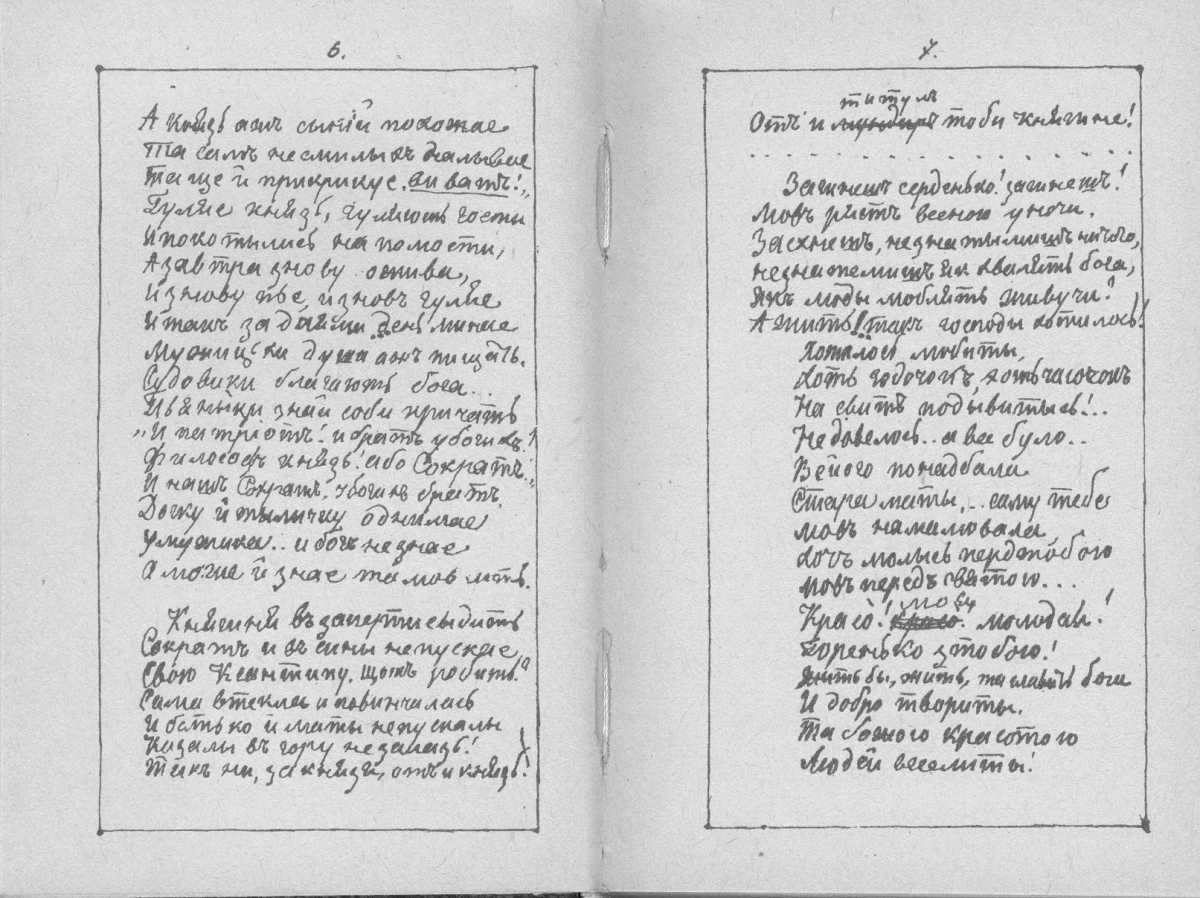 6.
А князь аж синій похожае
Та самъ несмилыхъ налывае
Та ще й прикрикуе виватъ!„
Гуляе князь, гуляють гости
И покотылись на помости,
А завтра знову ожива,
И знову пье, и зновъ гуляе
И такъ за днемъ день минае
Мужицьки душа ажъ пищать.
Судовики благають бога...
Пьяныци знай соби кричать
„И патріотъ! и братъ убогихъ!
Философъ князь! або Сократъ!„
И нашъ Сократъ, убогихъ братъ
Дочку й тылычку однимае
У мужика.. и богъ незнае
А може й знае та мовчить.
Княгиня въ заперти сыдить
Сократъ и въ сины непускае
Свою Ксантипу. Щожъ робить?
Сама втекла и повинчалась
И батько й маты непускалы
Казалы въ гору незалазь!
Такъ ни, за князя, отъ и князь!
7.
титулъ
Отъ и мундиръ тоби княгине!
. . . . . . . . . . . . . . . .
Загинешъ серденько! загинешъ!
Мовъ рястъ весною уночи.
Засхнешъ, незнатымишъ ничого,
незнатемишъ як хвалять бога,
Якъ люды люблять живучи!
А жить! такъ господы хотилось!
Хотилось любиты,
Хоть годочокъ, хоть часочокъ
На свитъ подывитысь!..
Не довелось.. а все було..
Всёго понадбала
Стара маты,.. саму тебе
Мовъ намалювала
Хочъ молысь передтобою
Мовъ передъ святою...
моя
Красо! красо. молодая!
Горенько зтобою!
Жить бы, жить, та славыть бога
И добро творыты.
Та божою красотою
Людей веселиты!